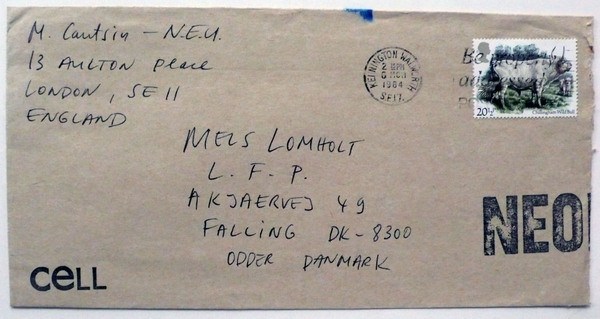 M. Cantsin - N.E.U.
13 AULTON place
LONDON, SE 11
ENGLAND
KENNINGTON WALWORTH
1984
S.E.17.
Be
20½
Chillingham Wild Bull
MELS LOMHOLT
L. F. P.
AKJAERVEJ 49
FALLING DK-8300
ODDER DANMARK
NEO
CELL